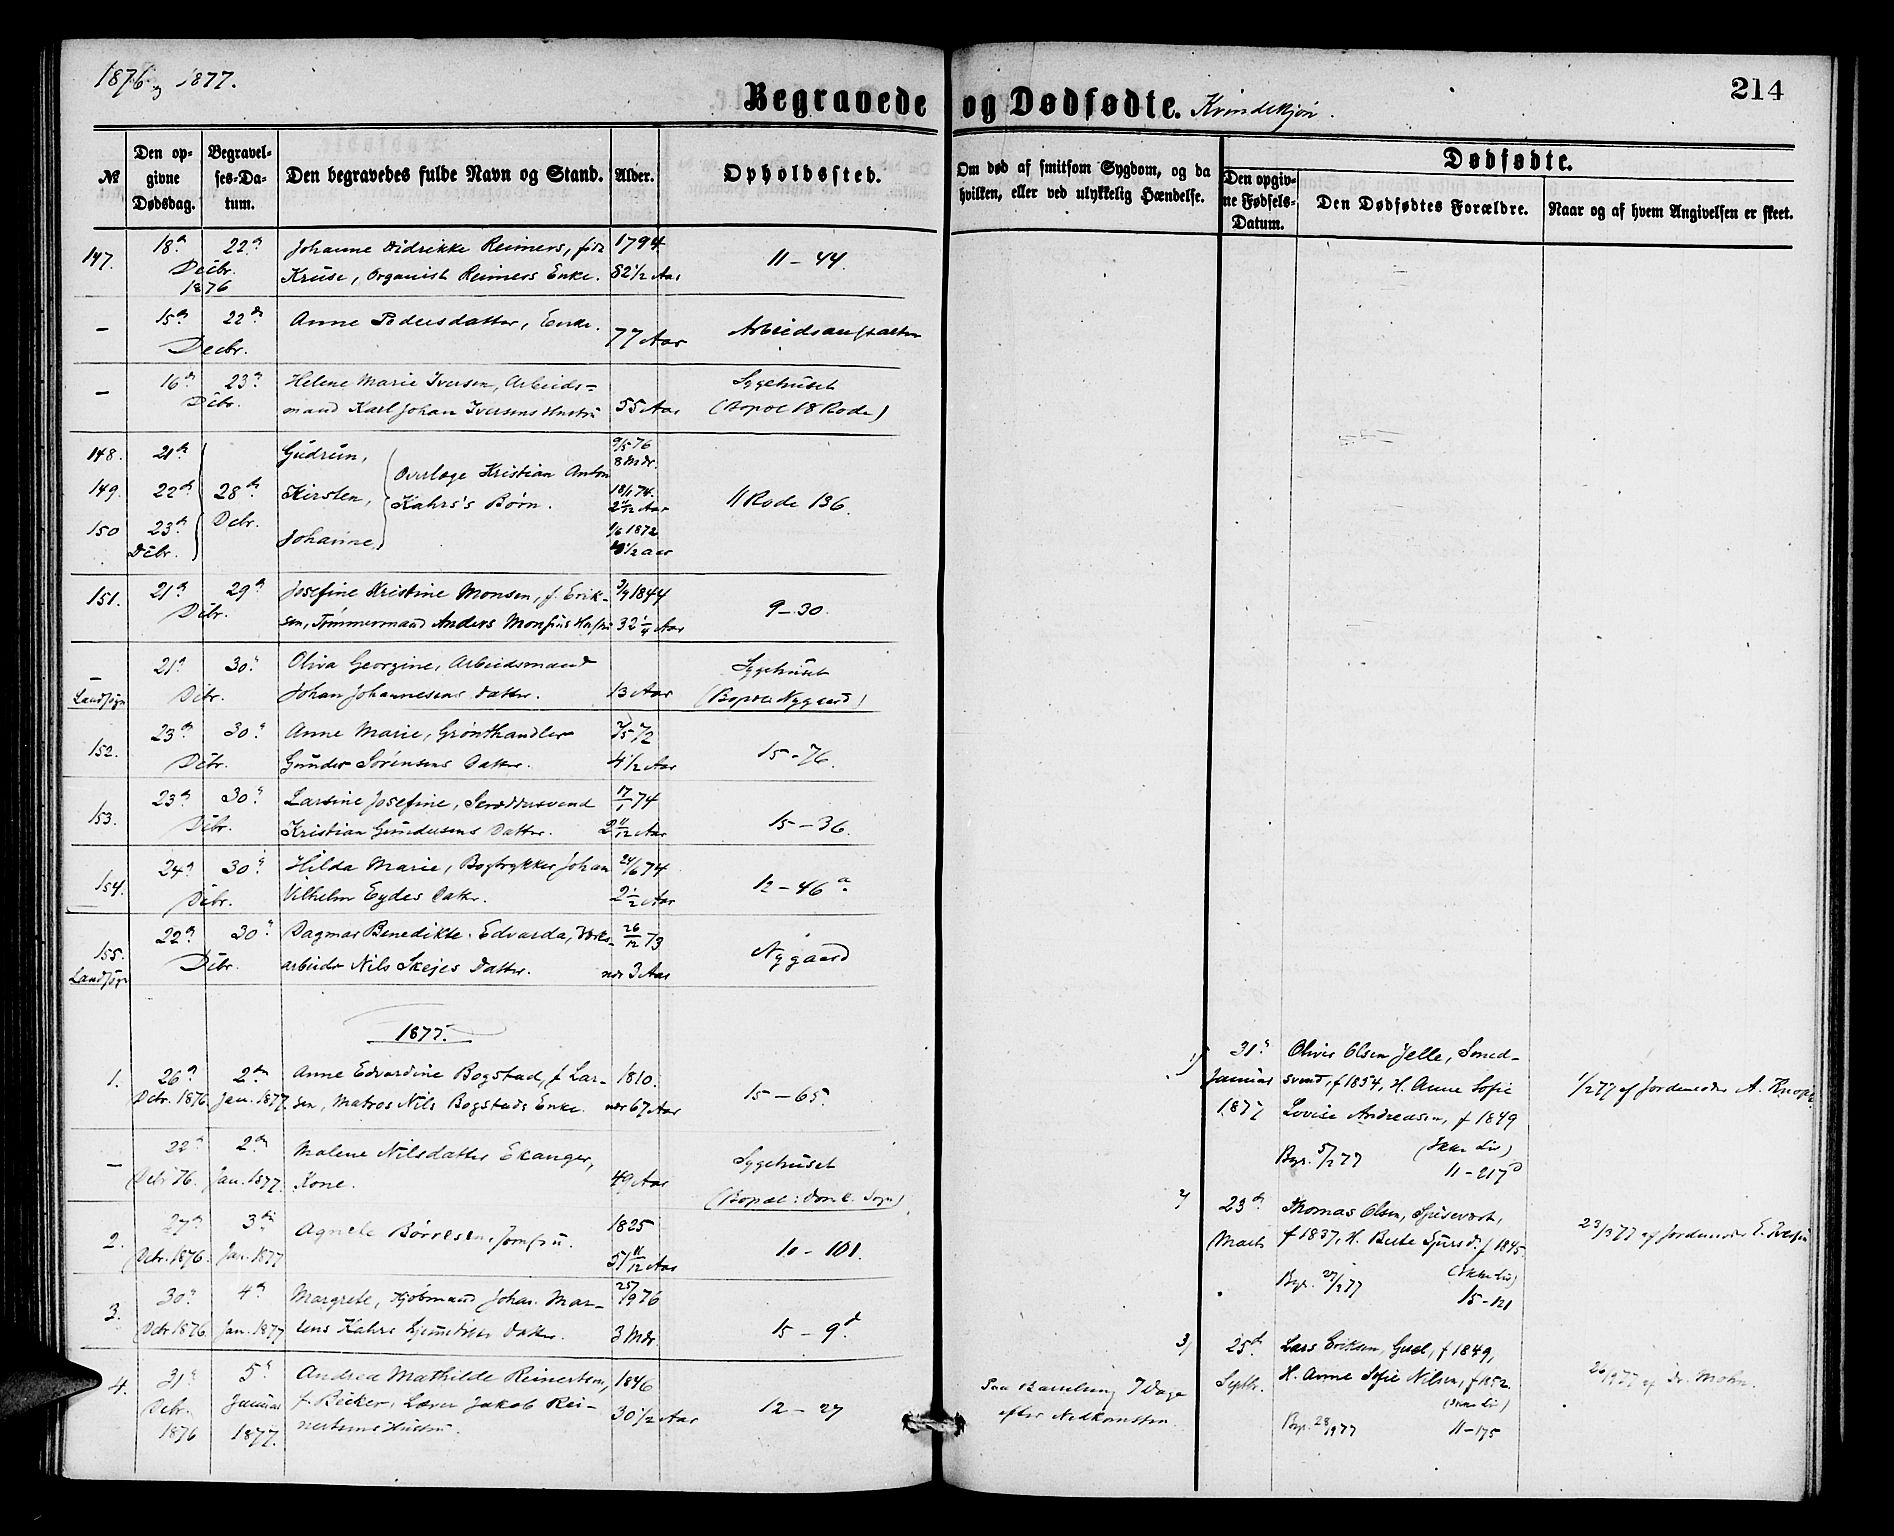 1876 og 1877.
Begravede og Dødfødte. Kvindekjøn.
214
№
Den opgivne Dødsdag.
Begravelses-Datum.
Den begravedes fulde Navn og Stand.
Alder.
Opholdssted.
Om død af smitsom Sygdom, og da hvilken, eller ved ulykkelig Hændelse.
Dødfødte.
Den opgivne Fødsels-Datum.
Den Dødfødtes Forældre.
Naar og af hvem Angivelsen er skeet.
147. 18de 22de Johanne Didrikke Reimers, fød 1794
Decbr. 1876 Kruse, Organist Reimers Enke. 82 1/2 Aar 11 – 44.
– 15de 22de Anne Pedersdatter, Enke. 77 Aar Arbeidsanstalten
Decbr.
– 16de 23de Helene Marie Iversen, Arbeids- Sygehuset
Decbr. mand Karl Johan Iversens Hustru 55 Aar (Bopæl 18 Rode)
148. 21de Gudrun, 9/5 76 8 Mdr.
149. 22de 28de Kirsten, Overlæge Kristian Anton 18/1 74. 2 11/12 Aar 11 Rode 136.
Decbr. Kahrs's Børn.
150 23de Decbr. Johanne, 1/6 1872 4 1/2 aar
151. 21de 29de Josefine Kristine Monsen, f. Erik- 3/9 1844
Decbr. sen, Tømmermand Anders Monsens Hustru 32 1/4 Aar 9 – 30.
– 21de 30te Oliva Georgine, Arbeidsmand Sygehuset
Landsogn Decbr. Johan Johannesens Datter. 13 Aar (Bopæl Nygaard)
152. 23de 30te Anne Marie, Grønthandler 3/5 72
Decbr. Gunder Sørensens Datter. 4 1/2 Aar 15 – 76.
153. 23de 30te Larsine Josefine, Skræddersvend 17/1 74
Decbr. Kristian Gundersens Datter. 2 11/12 Aar 15 – 36.
154. 24de 30te Hilda Marie, Bogtrykker Johan 24/6 74
Decbr. Vilhelm Eydes Datter. 2 1/2 Aar 12 – 46 a.
155. 22de 30te Dagmar Benedikte Edvarda, Værks- 26/12 73
Landsogn Decbr. arbeider Nils Skejes Datter. nær 3 Aar Nygaard
1877.
1. 26de 2den Anne Edvardine Bogstad, f. Lar- 1810.
Decbr. 1876. Jan. 1877. sen, Matros Nils Bogstads Enke. nær 67 Aar 15 – 65.
– 22de 2den Malene Nilsdatter Ekanger, Sygehuset
Decbr 76. Jan. 1877. Kone. 49 Aar (Bopæl: Domk. Sogn)
2. 27de 3die Agnete Børresen, Jomfru. 1825
Decbr. 1876. Jan. 1877 51 11/12 Aar 10 – 101.
3. 30te 4de Margrete, Kjøbmand Johan Mar- 25/9 76
Decbr. 1876. Jan. 1877 tens Kahrs Datter. 3 Mdr. 15 – 9 d.
4. 31te 5te Andrea Mathilde Reinertsen, 1846
Decbr. Januar f. Becker, Lærer Jakob Rei- 30 1/2 Aar 12 – 27
1876 1877. nertsens Hustru.
Paa Barselseng 7 Dage
efter Nedkomsten.
1) 31te Oliver Olsen Jelle, Smed-
Januar svend, f 1854, H. Anne Sofie 1/2 77 af Jordemoder A. Knoph.
1877 Lovise Andreasen, f 1849
Bgr. 5/2 77 (Ikke Liv)
11 – 217 D
2) 23de Thomas Olsen, Spisevært,
Marts f 1837, H. Berte Sjursd. f 1845 23/3 77 af Jordemoder E. Iversen
Bgr. 27/3 77 (Ikke Liv)
15 – 121
3) 25de Lars Eriksen, Gsel, f 1849,
Septbr. H. Anne Sofie Nilsen, f 1852. 26/9 77 af Dr. Mohn.
(Ikke Liv)
Bgr. 28/9 77 11 – 175